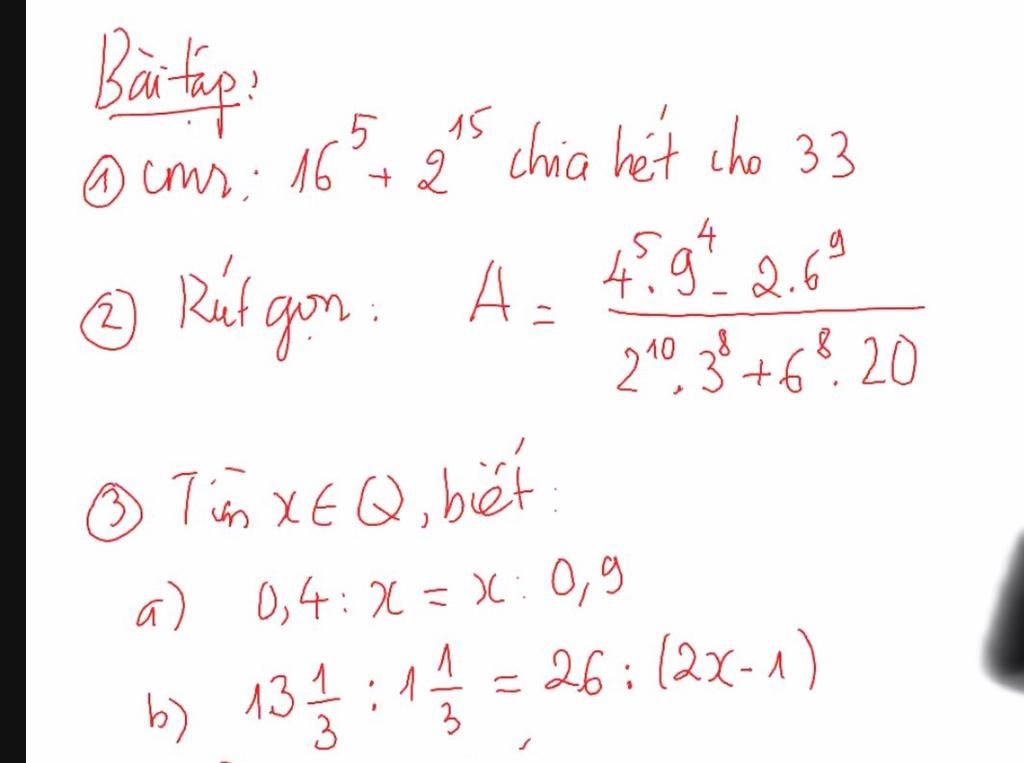 Bài tập:
① cmr: 16⁵ + 2¹⁵ chia hết cho 33
② Rút gọn: A = (4⁵.9⁴ - 2.6⁹)/(2¹⁰.3⁸ + 6⁸.20)
③ Tìm x ∈ Q, biết:
a) 0,4 : x = x : 0,9
b) 13 1/3 : 1 1/3 = 26 : (2x - 1)